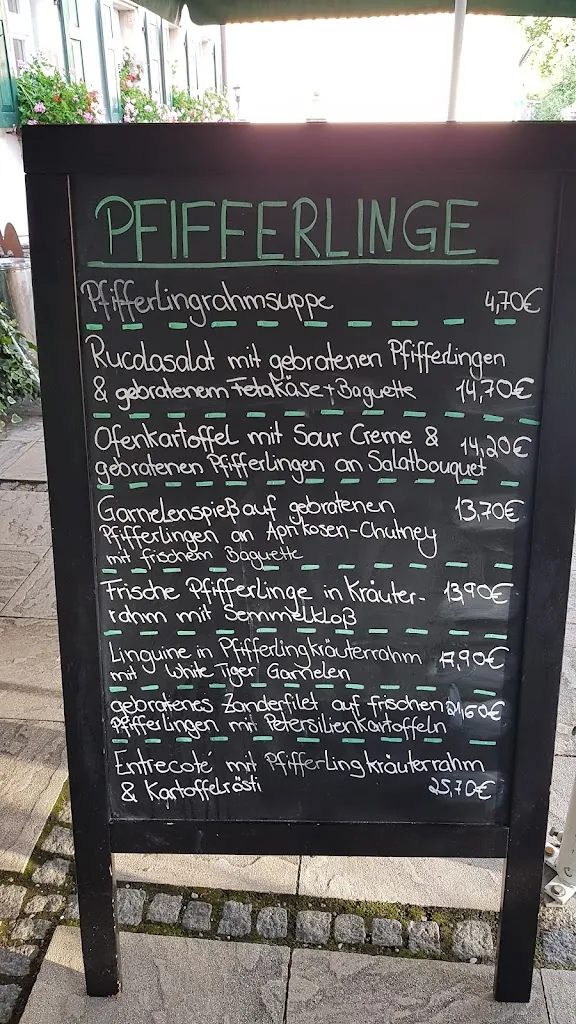 PFIFFERLINGE
Pfifferlingrahmsuppe 4,70€
Rucolasalat mit gebratenen Pfifferlingen
& gebratenem Fetakäse + Baguette 14,70€
Ofenkartoffel mit Sour Creme & 14,20€
gebratenen Pfifferlingen an Salatbouquet
Garnelenspieß auf gebratenen 13,70€
Pfifferlingen an Aprikosen-Chutney
mit frischem Baguette
Frische Pfifferlinge in Kräuter- 13,90€
rahm mit Semmelkloß
Linguine in Pfifferlingkräuterrahm 17,90€
mit White Tiger Garnelen
gebratenes Zanderfilet auf frischen 21,60€
Pfifferlingen mit Petersilienkartoffeln
Entrecote mit Pfifferlingkräuterrahm
& Kartoffelrösti 25,70€